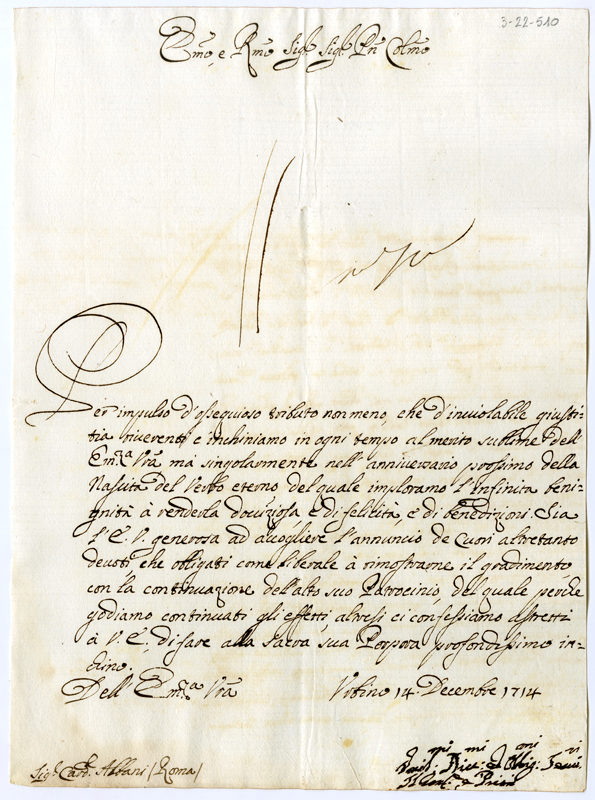 3-22-510
Emo, e Rmo Sigr Sigr Pñ Colmo
Per impulso d'ossequioso tributo non meno, che d'inviolabile giusti-
tia riverenti e inchiniamo in ogni tempo al merito sublime dell'
Em.za Vrã mà singolarmente nell'anniversario prossimo della
Nascita del Verbo eterno del quale imploramo l'infinita beni-
gnità à renderla doviziosa e di felicità, e di benedizioni. Sia
l'E. V. generosa ad accogliere l'annuncio de cuori altretanto
devoti che obligati come liberale à rimostrarne il gradimento
con la continuazione dell'alto suo Patrocinio, del quale perche
godiamo continuati gli effetti altresi ci confessiamo astretti
à V. E, di fare alla Sacra sua Porpora profondissimo in-
chino.
Dell' Em.za Vrã Urbino 14 Decembre 1714
Sigr Card. Albani (Roma)